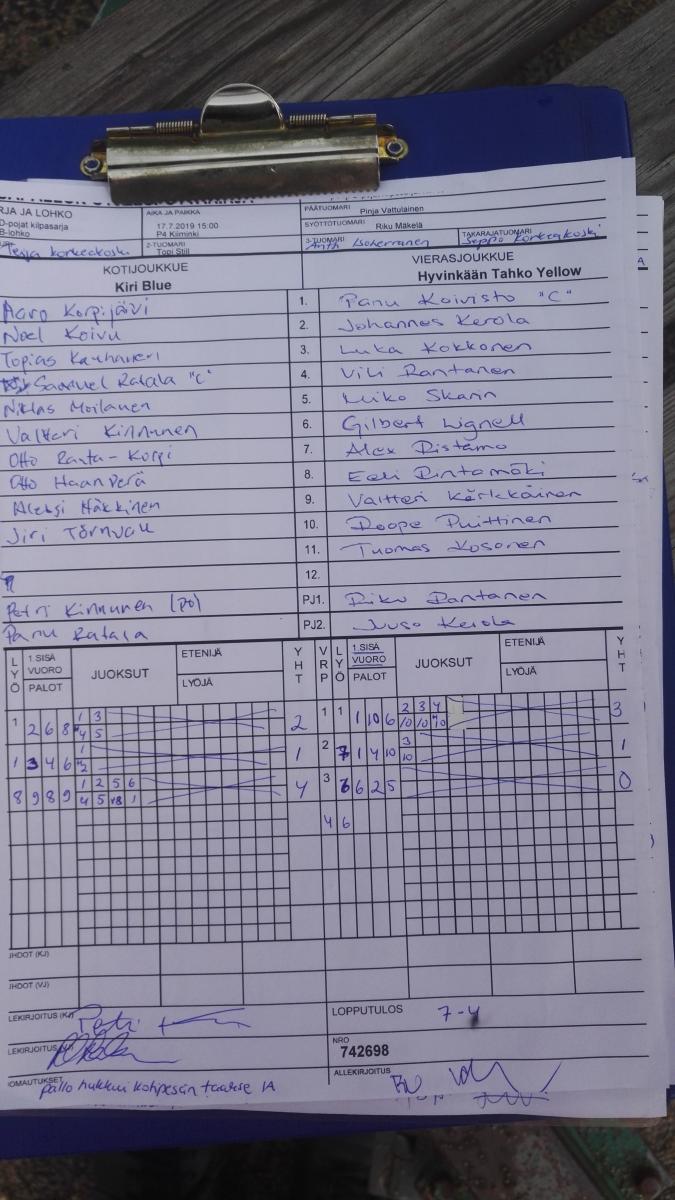 RJA JA LOHKO
D-pojat kilpasarja
B-lohko
AIKA JA PAIKKA
17.7.2019 15:00
P4 Kiminki
PÄÄTUOMARI Pinja Vattulainen
SYÖTTÖTUOMARI Riku Mäkelä
Korkeakoski
2-TUOMARI
Topi Still
3-TUOMARI
Isoherranen
TAKARAJATUOMARI
Seppo Korkeakoski
KOTIJOUKKUE
Kiri Blue
VIERASJOUKKUE
Hyvinkään Tahko Yellow
Aaro Korpijärvi 1. Panu Koivisto "C"
Noel Koivu 2. Johannes Kerola
Topias 3. Luka Kokkonen
Samuel Ratala "C" 4. Vili Rantanen
Niklas Moilanen 5. Miko Skarin
Valtteri Kinnunen 6. Gilbert Lignell
Otto Ranta-Korpi 7. Alex Ristamo
Otto Haanperä 8. Eeli Rintamäki
Aleksi Häkkinen 9. Valtteri Kärkkäinen
Jiri Törnvall 10. Roope Puittinen
11. Tuomas Kosonen
12.
Petri Kinnunen (PJ) PJ1. Riku Rantanen
Panu Ratala PJ2. Juuso Kerola
LYÖ 1.SISÄVUORO PALOT JUOKSUT ETENIJÄ LYÖJÄ YHT VRP LYÖ 1.SISÄVUORO PALOT JUOKSUT ETENIJÄ LYÖJÄ YHT
1 2 6 8 1 3 2 1 1 1 10 6 2 3 4 3
4 5 10 10 10
1 3 4 6 1 1 2 7 1 4 10 3 1
2 10
8 9 8 9 1 2 5 6 4 3 6 6 2 5 0
4 5 1
4 6
JHDOT (KJ)
JHDOT (VJ)
LEKIRJOITUS (KJ)
LOPPUTULOS 7-4
LEKIRJOITUS
NRO
742698
OMAUTUKSET pallo hukkui kotipesän taakse 1A
ALLEKIRJOITUS